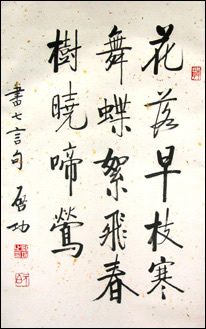 花落早枝寒
舞蝶絮飛春
樹曉啼鶯
書七言句 啓功